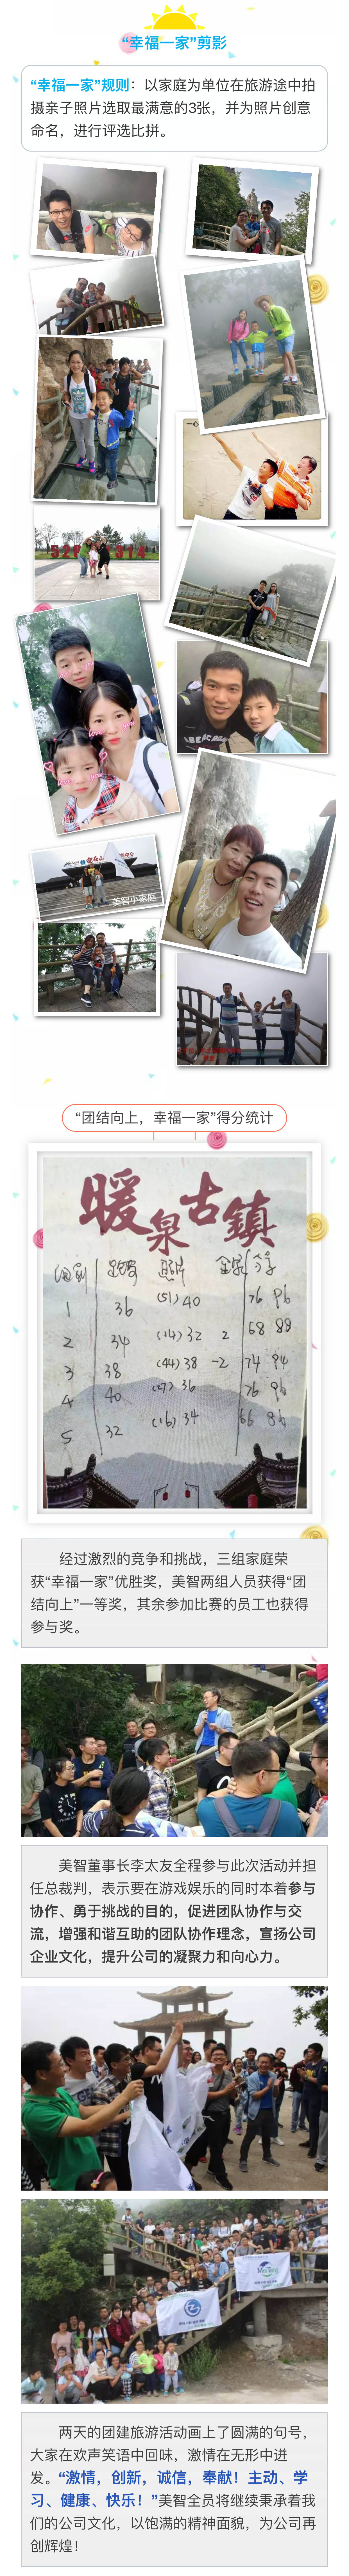 “幸福一家”剪影
“幸福一家”规则：以家庭为单位在旅游途中拍
摄亲子照片选取最满意的3张，并为照片创意
命名，进行评选比拼。
一心
520 1314
love
love
love
love
美智小家庭
“团结向上，幸福一家”得分统计
暖泉古镇
1 36 (51) 40 76 96
2 34 (14) 32 2 68 88
3 38 (44) 38 -2 74 94
4 40 (27) 36 76 96
5 32 (16) 34 66 86
经过激烈的竞争和挑战，三组家庭荣
获“幸福一家”优胜奖，美智两组人员获得“团
结向上”一等奖，其余参加比赛的员工也获得
参与奖。
美智董事长李太友全程参与此次活动并担
任总裁判，表示要在游戏娱乐的同时本着参与
协作、勇于挑战的目的，促进团队协作与交
流，增强和谐互助的团队协作理念，宣扬公司
企业文化，提升公司的凝聚力和向心力。
两天的团建旅游活动画上了圆满的句号，
大家在欢声笑语中回味，激情在无形中迸
发。“激情，创新，诚信，奉献！主动、学
习、健康、快乐！”美智全员将继续秉承着我
们的公司文化，以饱满的精神面貌，为公司再
创辉煌！